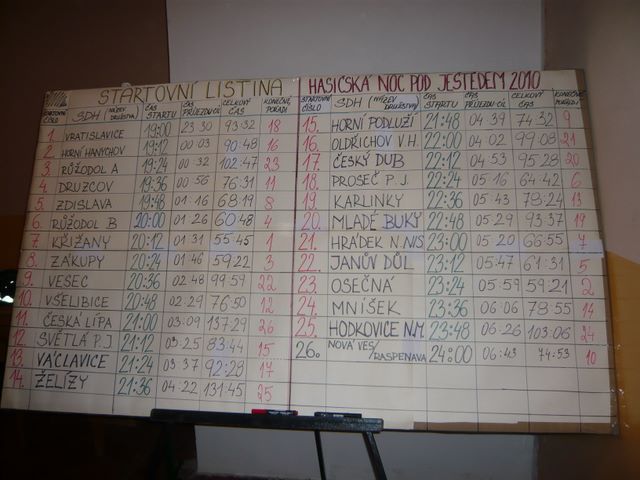 STARTOVNÍ LISTINA HASIČSKÁ NOC POD JEŠTĚDEM 2010
STARTOVNÍ ČÍSLO SDH / NÁZEV DRUŽSTVA / ČAS STARTU ČAS PŘÍJEZDU CÍL CELKOVÝ ČAS KONEČNÉ POŘADÍ
1. VRATISLAVICE 19:00 23 30 93:32 18
2. HORNÍ HANYCHOV 19:12 00 03 90:48 16
3. RŮŽODOL A 19:24 00 32 102:47 23
4. DRUZCOV 19:36 00 56 76:31 11
5. ZDISLAVA 19:48 01 16 68:19 8
6. RŮŽODOL B 20:00 01 26 60 48 4
7. KŘIŽANY 20:12 01 31 55 45 1
8. ZÁKUPY 20:24 01 46 59:22 3
9. VESEC 20:36 02 48 99:59 22
10. VŠELIBICE 20:48 02:29 76:50 12
11. ČESKÁ LÍPA 21:00 03:09 137:29 26
12 SVĚTLÁ P.J 21:12 03:25 83:44 15
13. VÁCLAVICE 21:24 03:37 92:28 17
14. ŽELÍZY 21:36 04:22 131:45 25
STARTOVNÍ ČÍSLO SDH / NÁZEV DRUŽSTVA / ČAS STARTU ČAS PŘÍJEZDU CÍL CELKOVÝ ČAS KONEČNÉ POŘADÍ
15. HORNÍ PODLUŽÍ 21:48 04 39 74:32 9
16. OLDŘICHOV V.H. 22:00 04:02 99:08 21
17 ČESKÝ DUB 22:12 04:53 95:28 20
18. PROSEČ P.J. 22:24 05:16 64:42 6
19. KARLINKY 22:36 05:43 78:24 13
20. MLADÉ BUKY 22:48 05:29 93:37 19
21. HRÁDEK N.NIS 23:00 05:20 66:55 7
22. JANŮV DŮL 23:12 05:47 61:31 5
23 OSEČNÁ 23:24 05:59 59:21 2
24. MNÍŠEK 23:36 06:06 78:55 14
25. HODKOVICE N.M. 23:48 06:26 103:06 24
26. NOVÁ VES/RASPENAVA 24:00 06:43 74:53 10